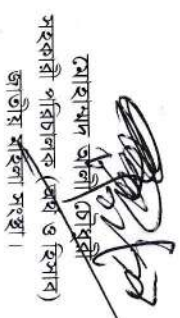 মোহাম্মদ আলী চৌধুরী
সহকারী পরিচালক (অর্থ ও হিসাব)
জাতীয় মহিলা সংস্থা।